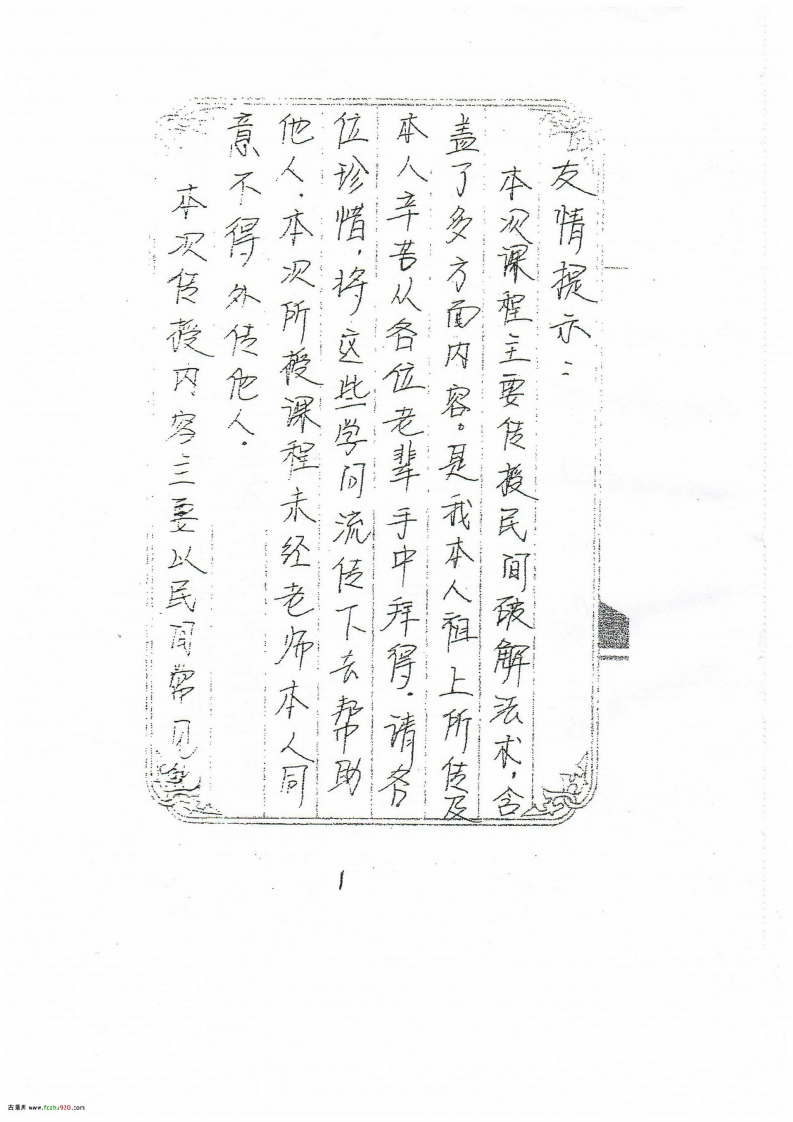 友情提示：
本次课程主要传授民间破解法术，含
盖了多方面内容。是我本人祖上所传及
本人辛苦从各位老辈手中拜得．请各
位珍惜，将这些学问流传下去帮助
他人．本次所授课程未经老师本人同
意不得外传他人．
本次传授内容主要以民间常见
1
www.fczhu920.com